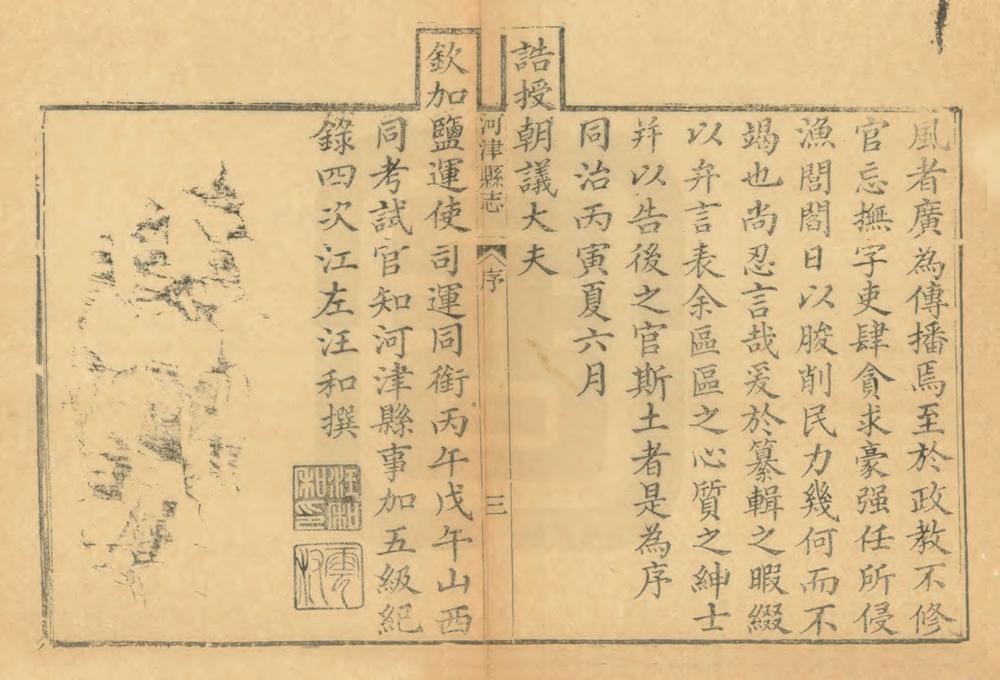 風者廣為傳播焉至於政教不修
官忘撫字吏肆貪求豪强任所侵
漁閭閻日以朘削民力幾何而不
竭也尚忍言哉爰於纂輯之暇綴
以弁言表余區區之心質之紳士
并以告後之官斯土者是為序
同治丙寅夏六月
誥授朝議大夫
河津縣志
序
三
欽加鹽運使司運同銜丙午戊午山西
同考試官知河津縣事加五級紀
錄四次江左汪和撰
汪和
相印